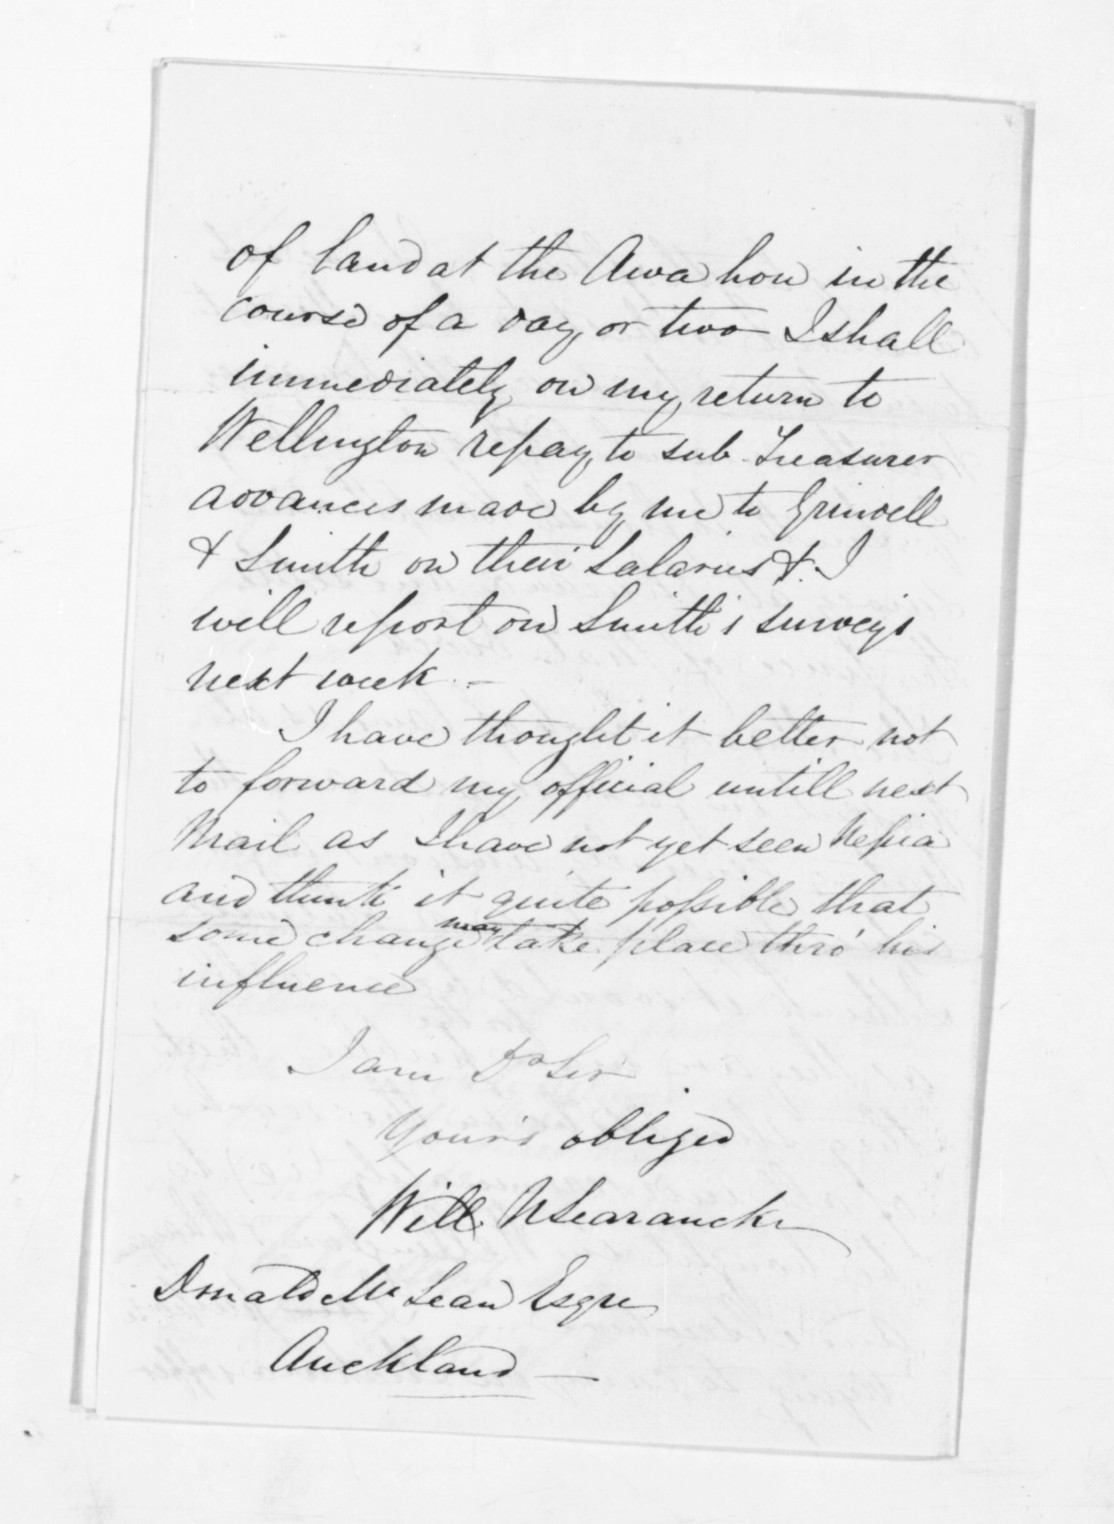 of land at the Awa hou in the
course of a day or two I shall
immediately on my return to
Wellington repay to sub-Treasurer
advances made by me to Grindell
& Smith on their Salaries &. I
will report on Smith's surveys
next week. -
I have thought it better not
to forward my official untill next
Mail as I have not yet seen Nepia
and think it quite possible that
some change may take place thro' his
influence
I am Dr Sir
Your's obliged
Will. N Searancke
Donald McLean Esqre
Auckland -